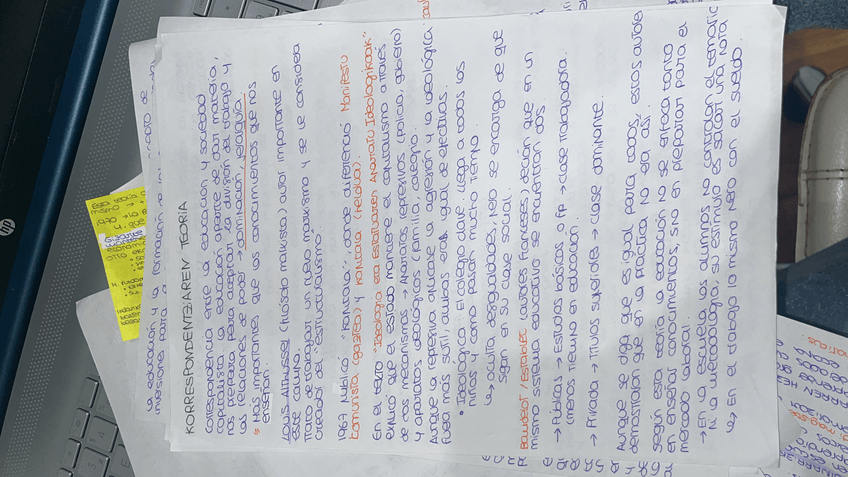 KORRESPONDENTZIAREN TEORIA
Correspondencia entre la educación y sociedad
capitalista. La educación aparte de dar materia,
nos prepara para aceptar la división del trabajo y
las relaciones de poder → dominación y jerarquía.
Más importantes que los conocimientos que nos
enseñan.
Louis Althusser (filósofo marxista) autor importante en
este camino.
Trató de conseguir un nuevo marxismo y se le considera
creador del "estructuralismo".
1967 Publicó "Kapitala", donde diferenció Manifestu
Komunista (gaztea) y Kapitala (heldua).
En el texto "Ideologia eta Estatuaren Aparatu Ideologikoak"
explicó que el estado mantiene el capitalismo a través
de dos mecanismos → Aparatos represivos (policía, gobierno)
y aparatos ideológicos (familia, colegio).
Aunque la represiva utilizase la agresión y la ideológica
fuera más sutil, ambas eran igual de efectivas.
• Ideológica: El colegio clave. Llega a todos los
niños y como pasan mucho tiempo.
↳ oculta desigualdades, pero se encarga de que
sigan en su clase social.
Baudelot / Establet (autores franceses) decían que en un
mismo sistema educativo se encuentran dos
→ Públicas → Estudios básicos o fp → clase trabajadora.
(menos tiempo en educación)
→ Privada → Títulos superiores → clase dominante.
Aunque se diga que es igual para todos, estos autores
demostraron que en la práctica no era así.
Según esta teoría la educación no se enfoca tanto
en enseñar conocimientos, sino en preparar para el
mercado laboral.
→ En la escuela los alumnos no controlan el temario
ni la metodología, su estímulo es sacar una nota
↳ En el trabajo lo mismo pero con el sueldo
la educación y la formación de
inversiones para la
Esta teoría
mismo →
1970 →
4. que
hp